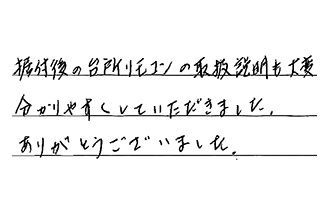 据付後の台所リモコンの取扱説明も大変
分かりやすくしていただきました。
ありがとうございました。